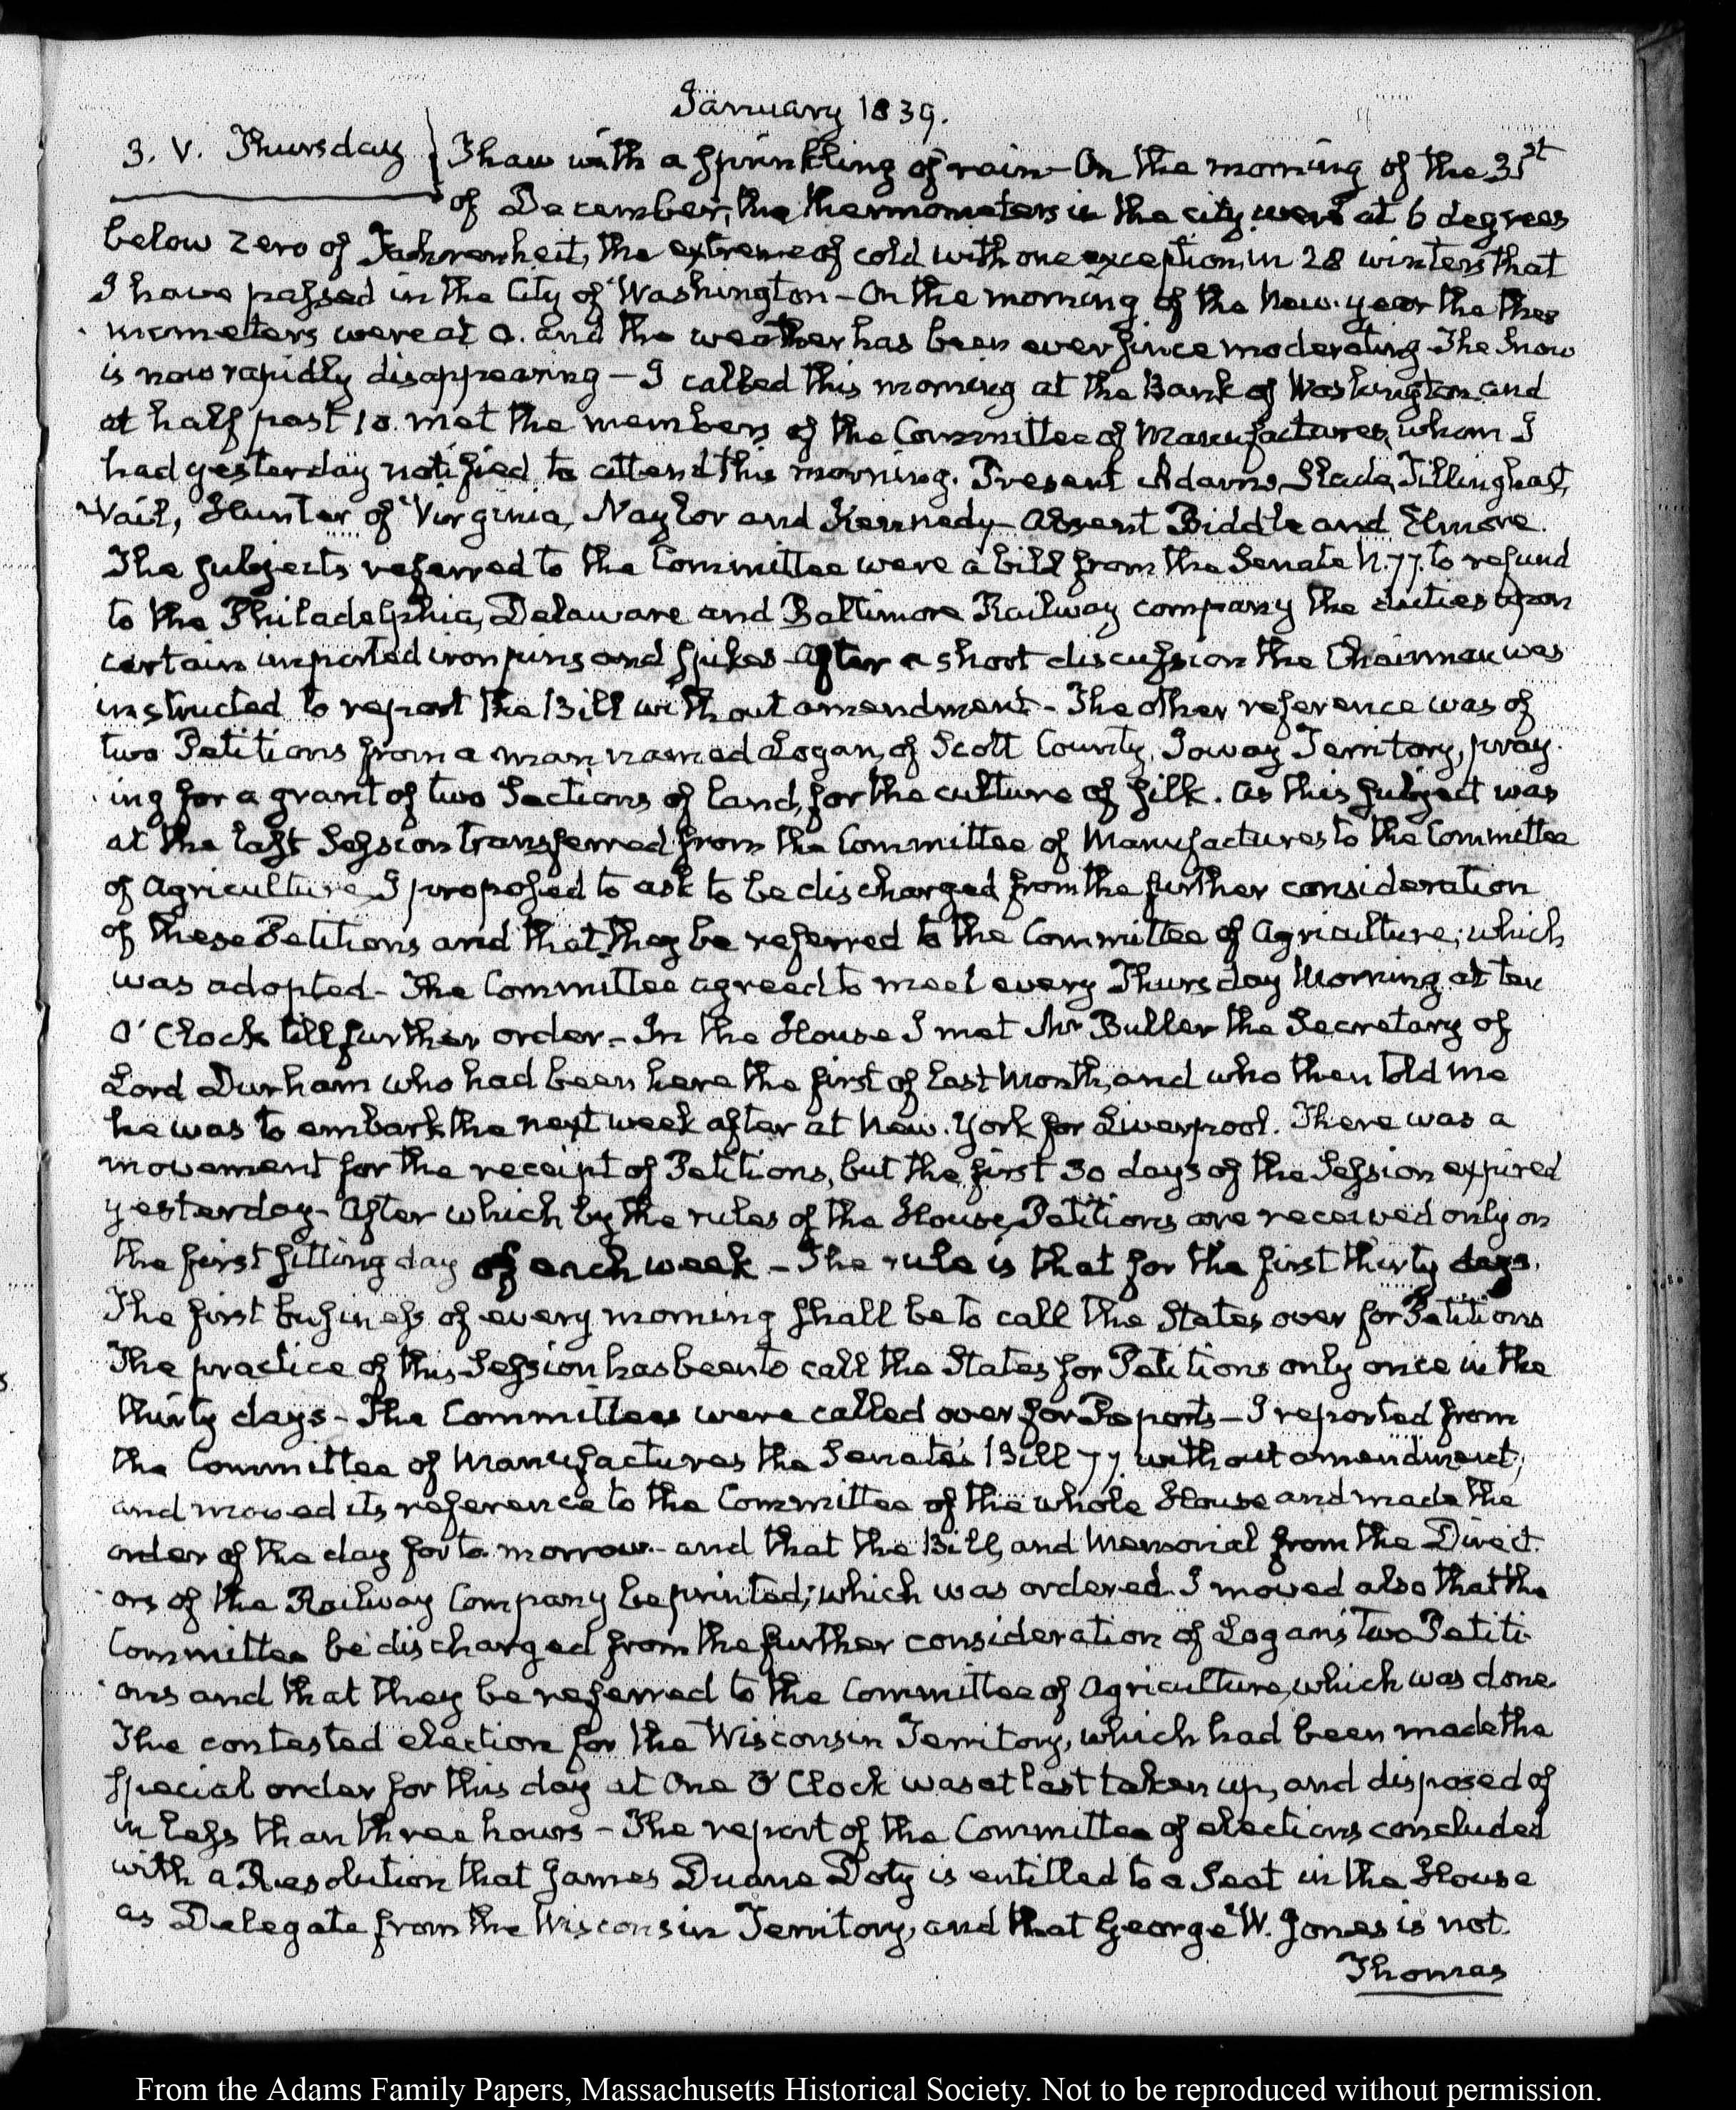 January 1839.
3. V. Thursday
Thaw with a sprinkling of rain - On the morning of the 31st
of December, the thermometers in the city were at 6 degrees
below zero of Fachrenheit, the extreme of cold with one exception, in 28 winters that
I have passed in the City of Washington - On the morning of the New-year the ther
mometers were at 0. and the weather has been ever since moderating - The Snow
is now rapidly disappearing - I called this morning at the Bank of Washington and
at half past 10. met the members of the Committee of Manufactures, whom I
had yesterday notified to attend this morning. Present Adams, Slade, Tillinghast,
Vail, Hunter of Virginia, Naylor and Kennedy - Absent Biddle and Elmore.
The subjects referred to the Committee were a bill from the Senate N. 77. to refund
to the Philadelphia, Delaware and Baltimore Railway company the duties upon
certain imported iron pins and spikes - After a short discussion the Chairman was
instructed to report the Bill without amendment - The other reference was of
two Petitions from a man, named Logan, of Scott County, Ioway Territory, pray-
ing for a grant of two Sections of land, for the culture of silk. As this subject was
at the last Session transferred from the Committee of Manufactures to the Committee
of Agriculture, I proposed to ask to be discharged from the further consideration
of these Petitions and that they be referred to the Committee of Agriculture; which
was adopted - The Committee agreed to meet every Thursday Morning at ten
O'Clock till further order - In the House I met Mr Buller the Secretary of
Lord Durham who had been here the first of last Month, and who then told me
he was to embark the next week after at New-York for Liverpool. There was a
movement for the receipt of Petitions, but the first 30 days of the Session expired
yesterday - After which by the rules of the House, Petitions are received only on
the first sitting day of each week - The rule is that for the first thirty days.
The first business of every morning shall be to call the States over for Petitions
The practice of this Session has been to call the States for Petitions only once in the
thirty days - The Committees were called over for Reports - I reported from
the Committee of Manufactures the Senate's Bill 77. without amendment;
and moved its reference to the Committee of the whole House and made the
order of the day for to-morrow - and that the Bill, and Memorial from the Direct-
ors of the Railway Company be printed; which was ordered. I moved also that the
Committee be discharged from the further consideration of Logan's two Petiti-
ons and that they be referred to the Committee of Agriculture, which was done.
The contested election for the Wisconsin Territory, which had been made the
special order for this day at One O'Clock was at last taken up, and disposed of
in less than three hours - The report of the Committee of elections concluded
with a Resolution that James Duane Doty is entitled to a Seat in the House
as Delegate from the Wisconsin Territory, and that George W. Jones is not.
Thomas
From the Adams Family Papers, Massachusetts Historical Society. Not to be reproduced without permission.